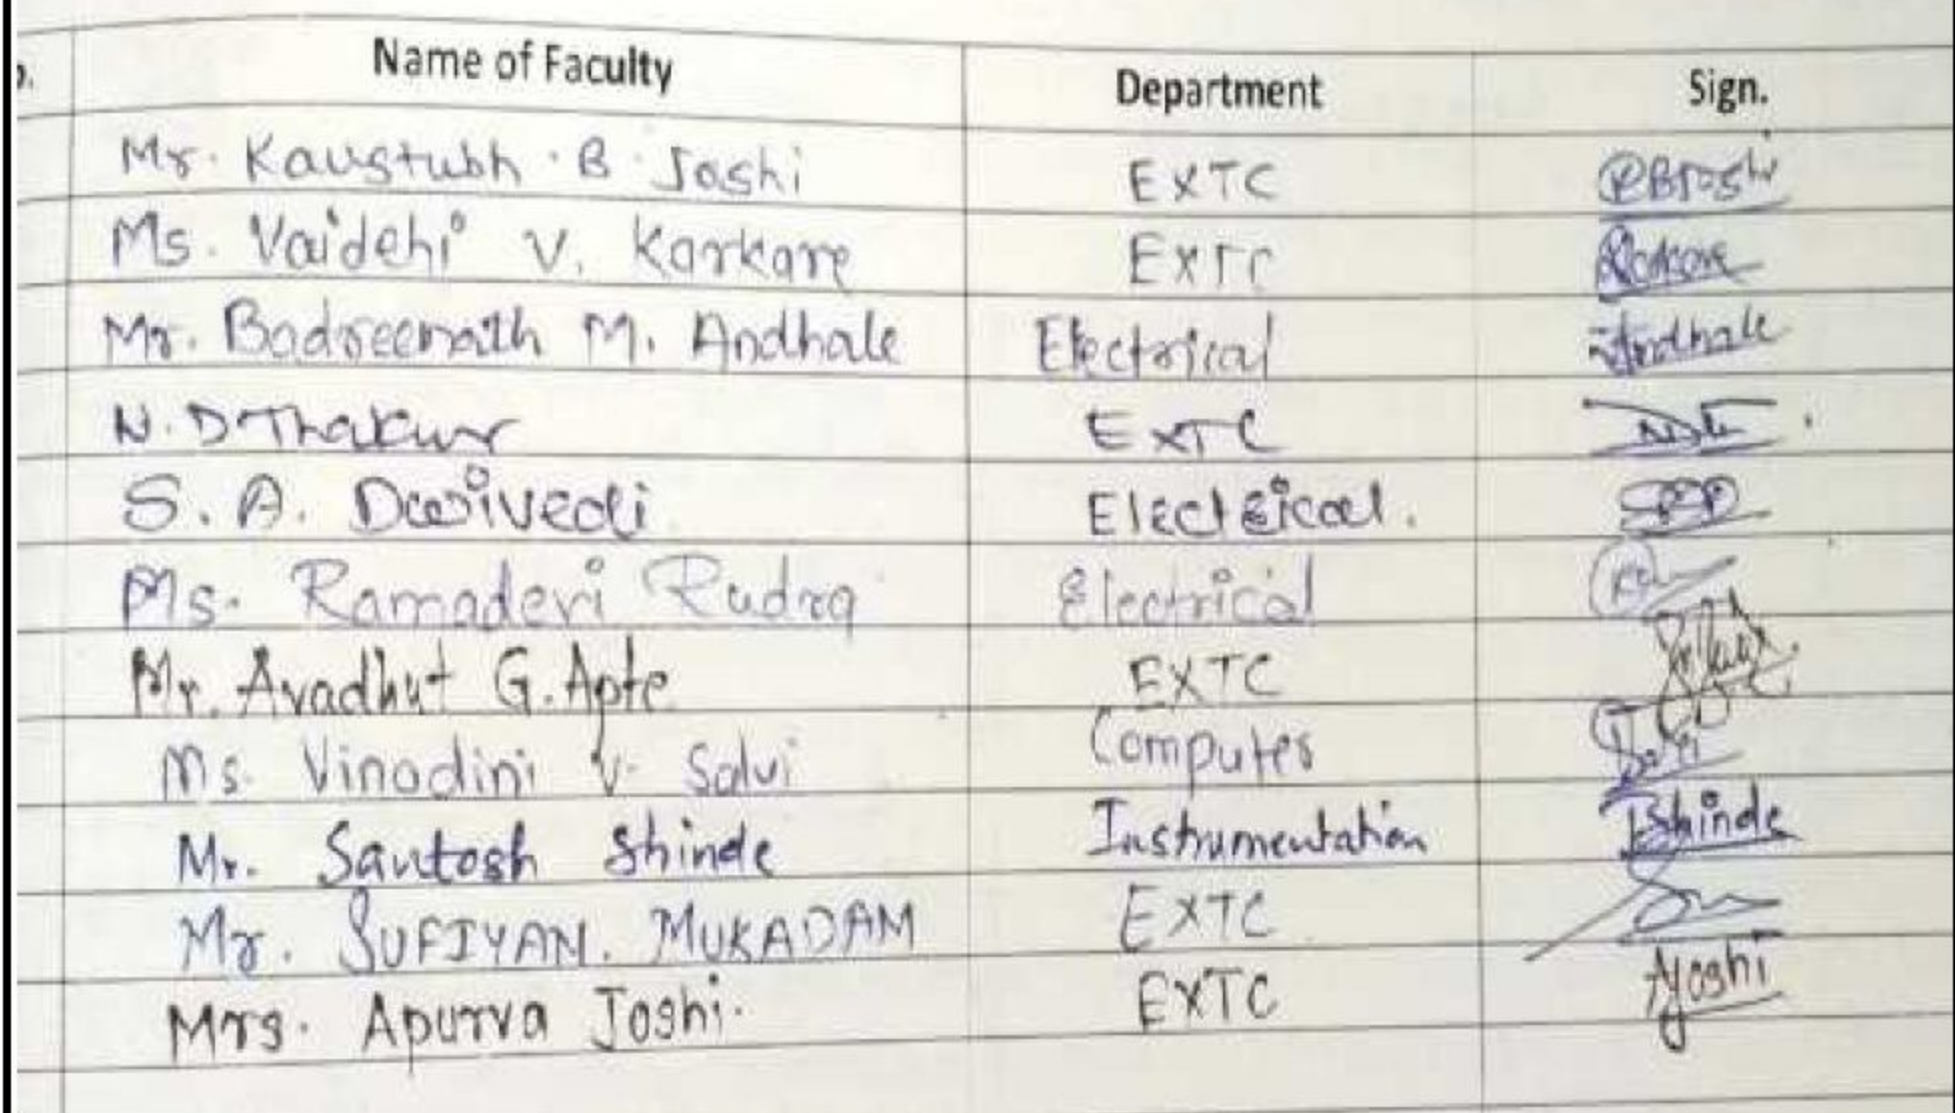 Name of Faculty Department Sign.
Mr. Kaustubh . B . Joshi EXTC KBJoshi
Ms. Vaidehi V. Karkare EXTC Karkare
Mr. Badreenath M. Andhale Electrical Andhale
N. D Thakur EXTC
S. A. Dwivedi Electrical.
Ms. Ramadevi Rudra Electrical
Mr. Avadhut G. Apte EXTC
Ms. Vinodini V. Salvi Computer
Mr. Santosh Shinde Instrumentation Shinde
Mr. SUFIYAN. MUKADAM EXTC
Mrs. Apurva Joshi. EXTC AJoshi